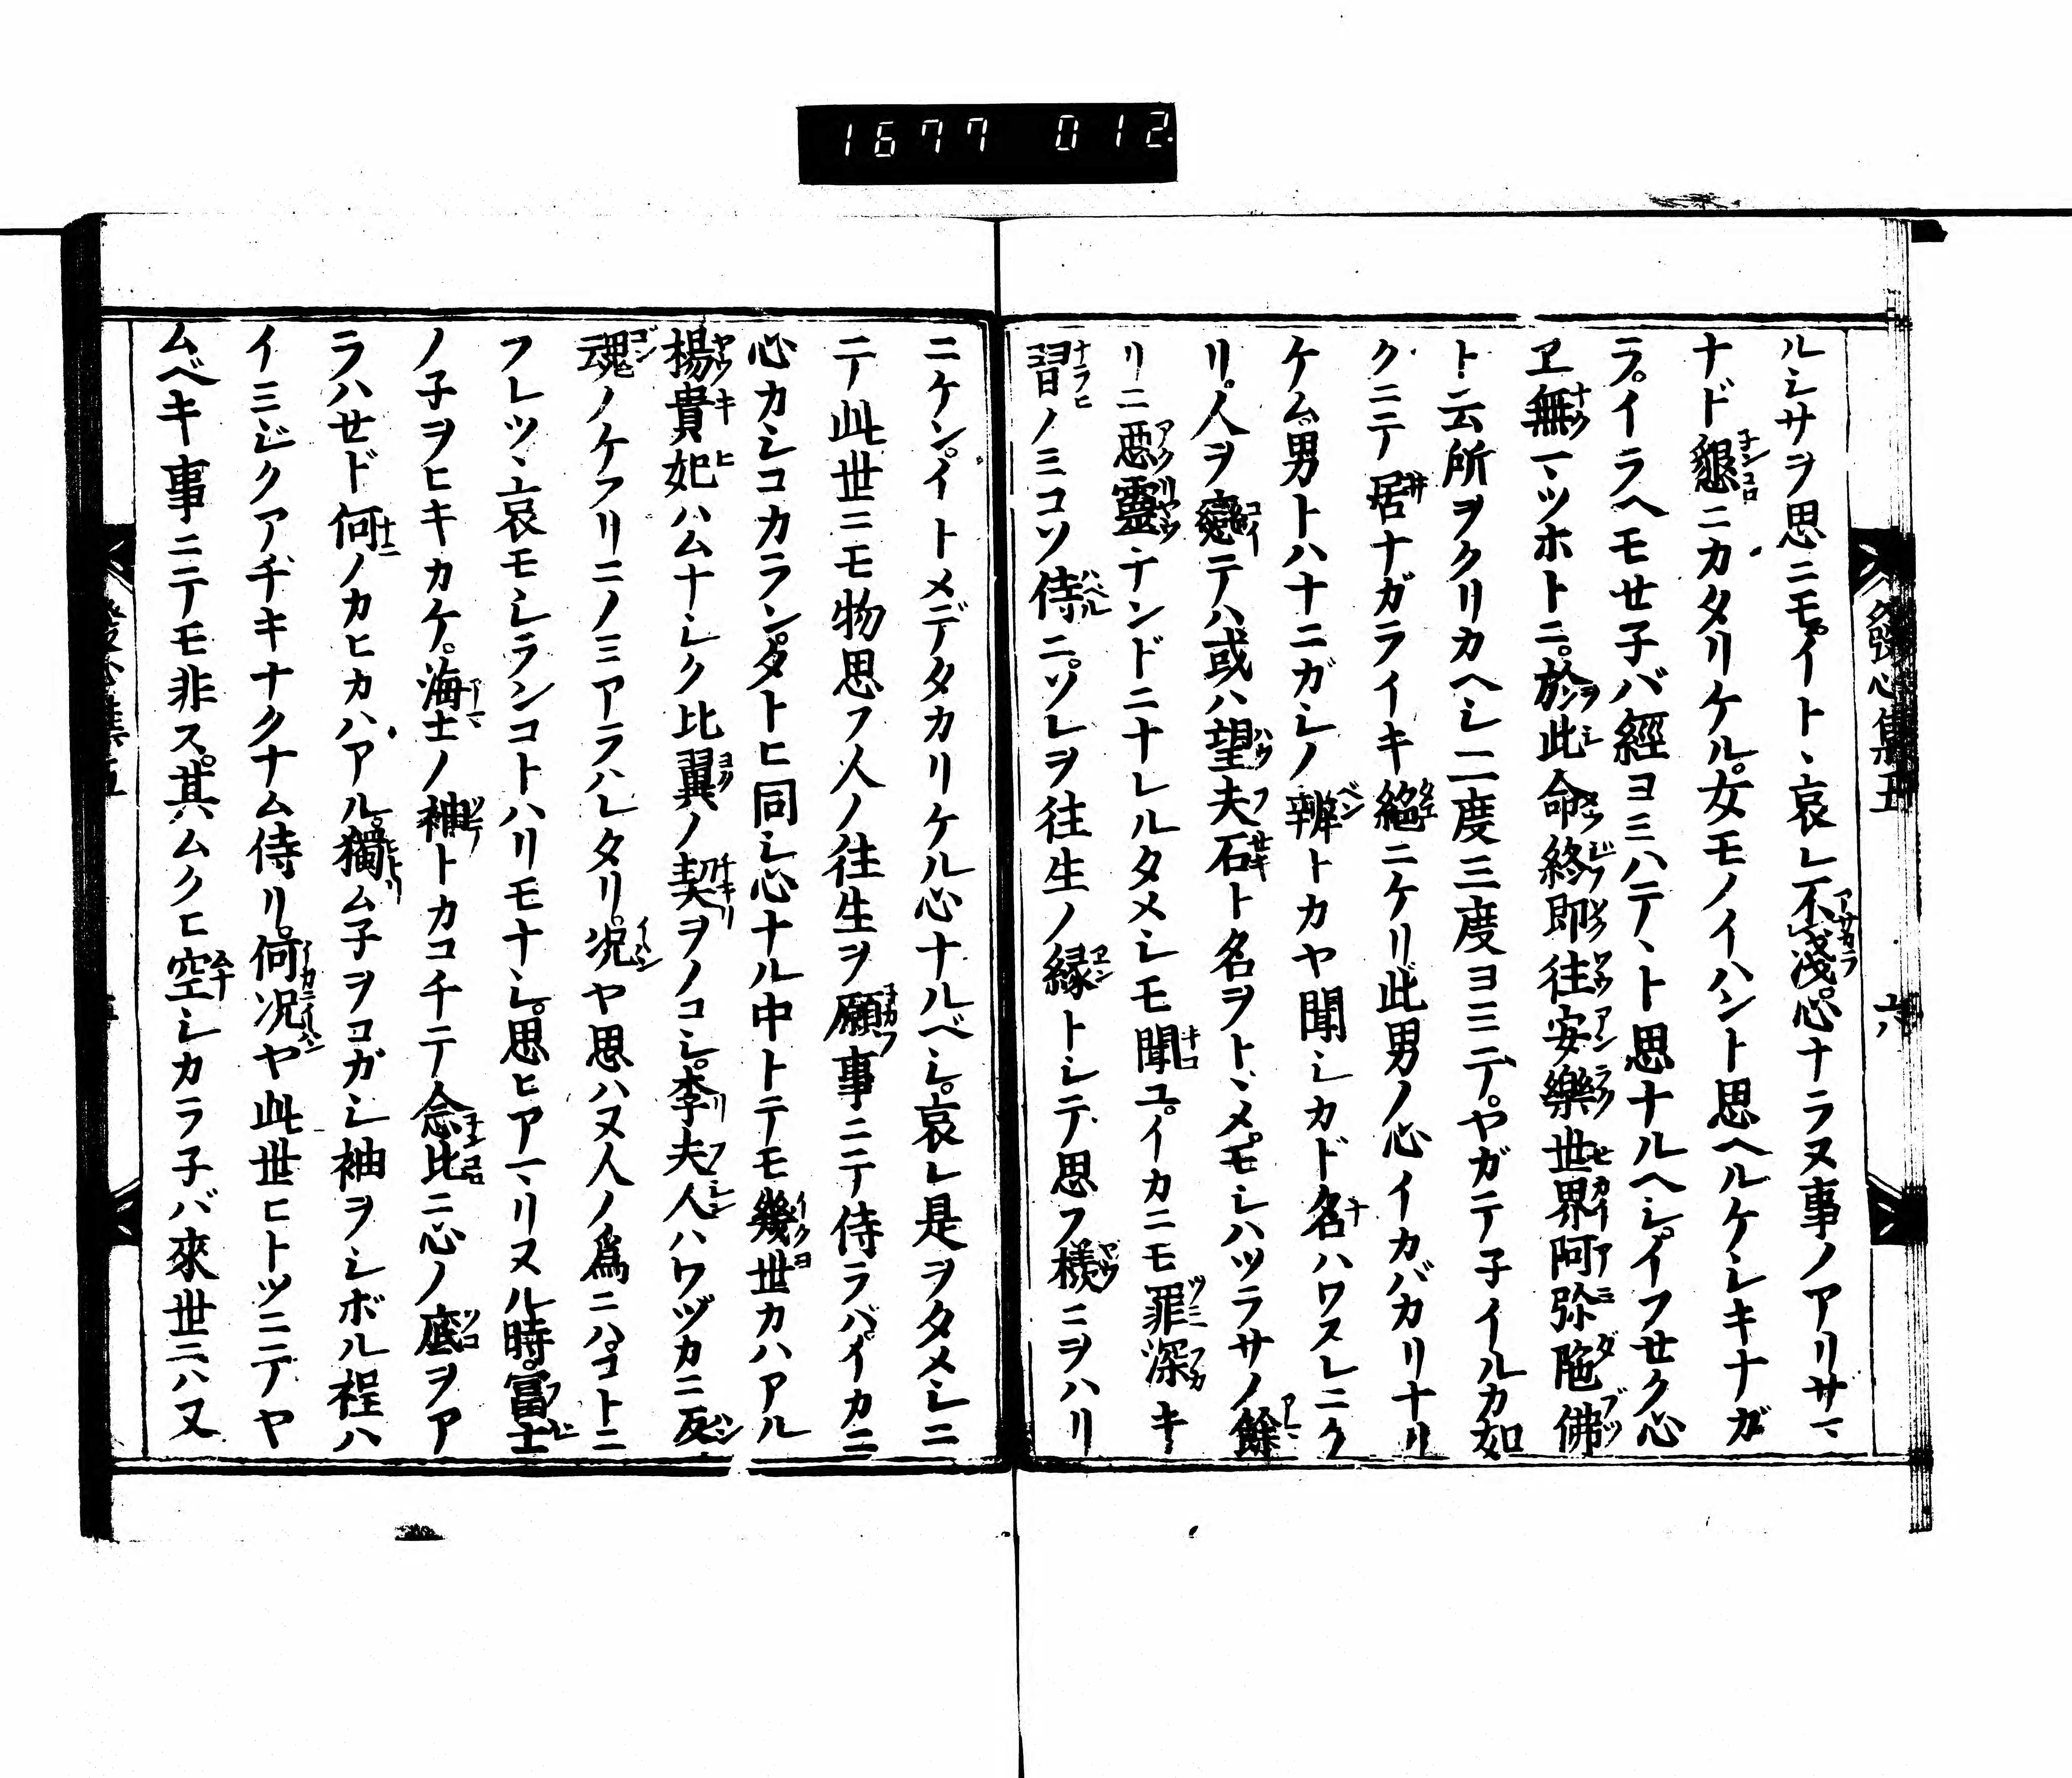 1677 012
發心集五 六
ルシサヲ思ニモ。イトヽ哀レ不淺。心ナラヌ事ノアリサマ
ナド懇ニカタリケル。女モノイハント思ヘルケシキナガ
ラ。イラヘモせ子バ經ヨミハテヽト思ナルヘシ。イフせク心
ヱ無マヽツホトニ。於此命終即往安樂世界阿弥陁佛
ト云所ヲクリカヘシ二度三度ヨミテ。ヤガテ子イルカ如
クニテ居ナガライキ絕ニケリ此男ノ心イカバカリナリ
ケム。男トハナニガシノ辨トカヤ聞シカド名ハワスレニク
リ。人ヲ戀テハ或ハ望夫石ト名ヲトヽメ。モシハツラサノ餘
リニ惡靈ナンドニナレルタメシモ聞ユ。イカニモ罪深キ
習ノミコソ侍ニ。ソレヲ往生ノ縁トシテ思フ樣ニヲハリ
ニケン。イトメデタカリケル心ナルベシ。哀レ是ヲタメシニ
テ此世ニモ物思フ人ノ往生ヲ願事ニテ侍ラバ。イカニ
心カシコカラン。タトヒ同シ心ナル中トテモ幾世カハアル
楊貴妃ハムナシク比翼ノ契ヲノコシ。李夫人ハワヅカニ反
魂ノケフリニノミアラハレタリ。况ヤ思ハヌ人ノ爲ニハ。コトニ
フレツヽ哀モシランコトハリモナシ。思ヒアマリヌル時。冨士
ノ子ヲヒキカケ。海士ノ袖トカコチテ念比ニ心ノ底ヲア
ラハせド何ノカヒカハアル。獨ム子ヲコガシ袖ヲシボル程ハ
イミジクアチキナクナム侍リ。何况ヤ此世ヒトツニテヤ
ムベキ事ニテモ非ス。其ムクヒ空シカラ子バ來世ニハ又